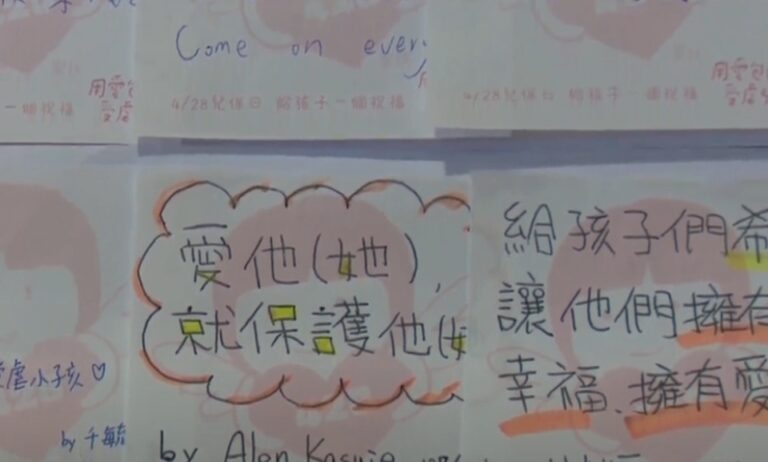 Come on ever
一個祝福
用愛包
受虐
4/28兒保日 給孩子一個祝福
4/28兒保日 給孩子一個祝福
用愛包
受虐
愛他(她),
就保護他(女
by Alan
給孩子們希
讓他們擁有
幸福、擁有愛
虐小孩♡
by 千毓